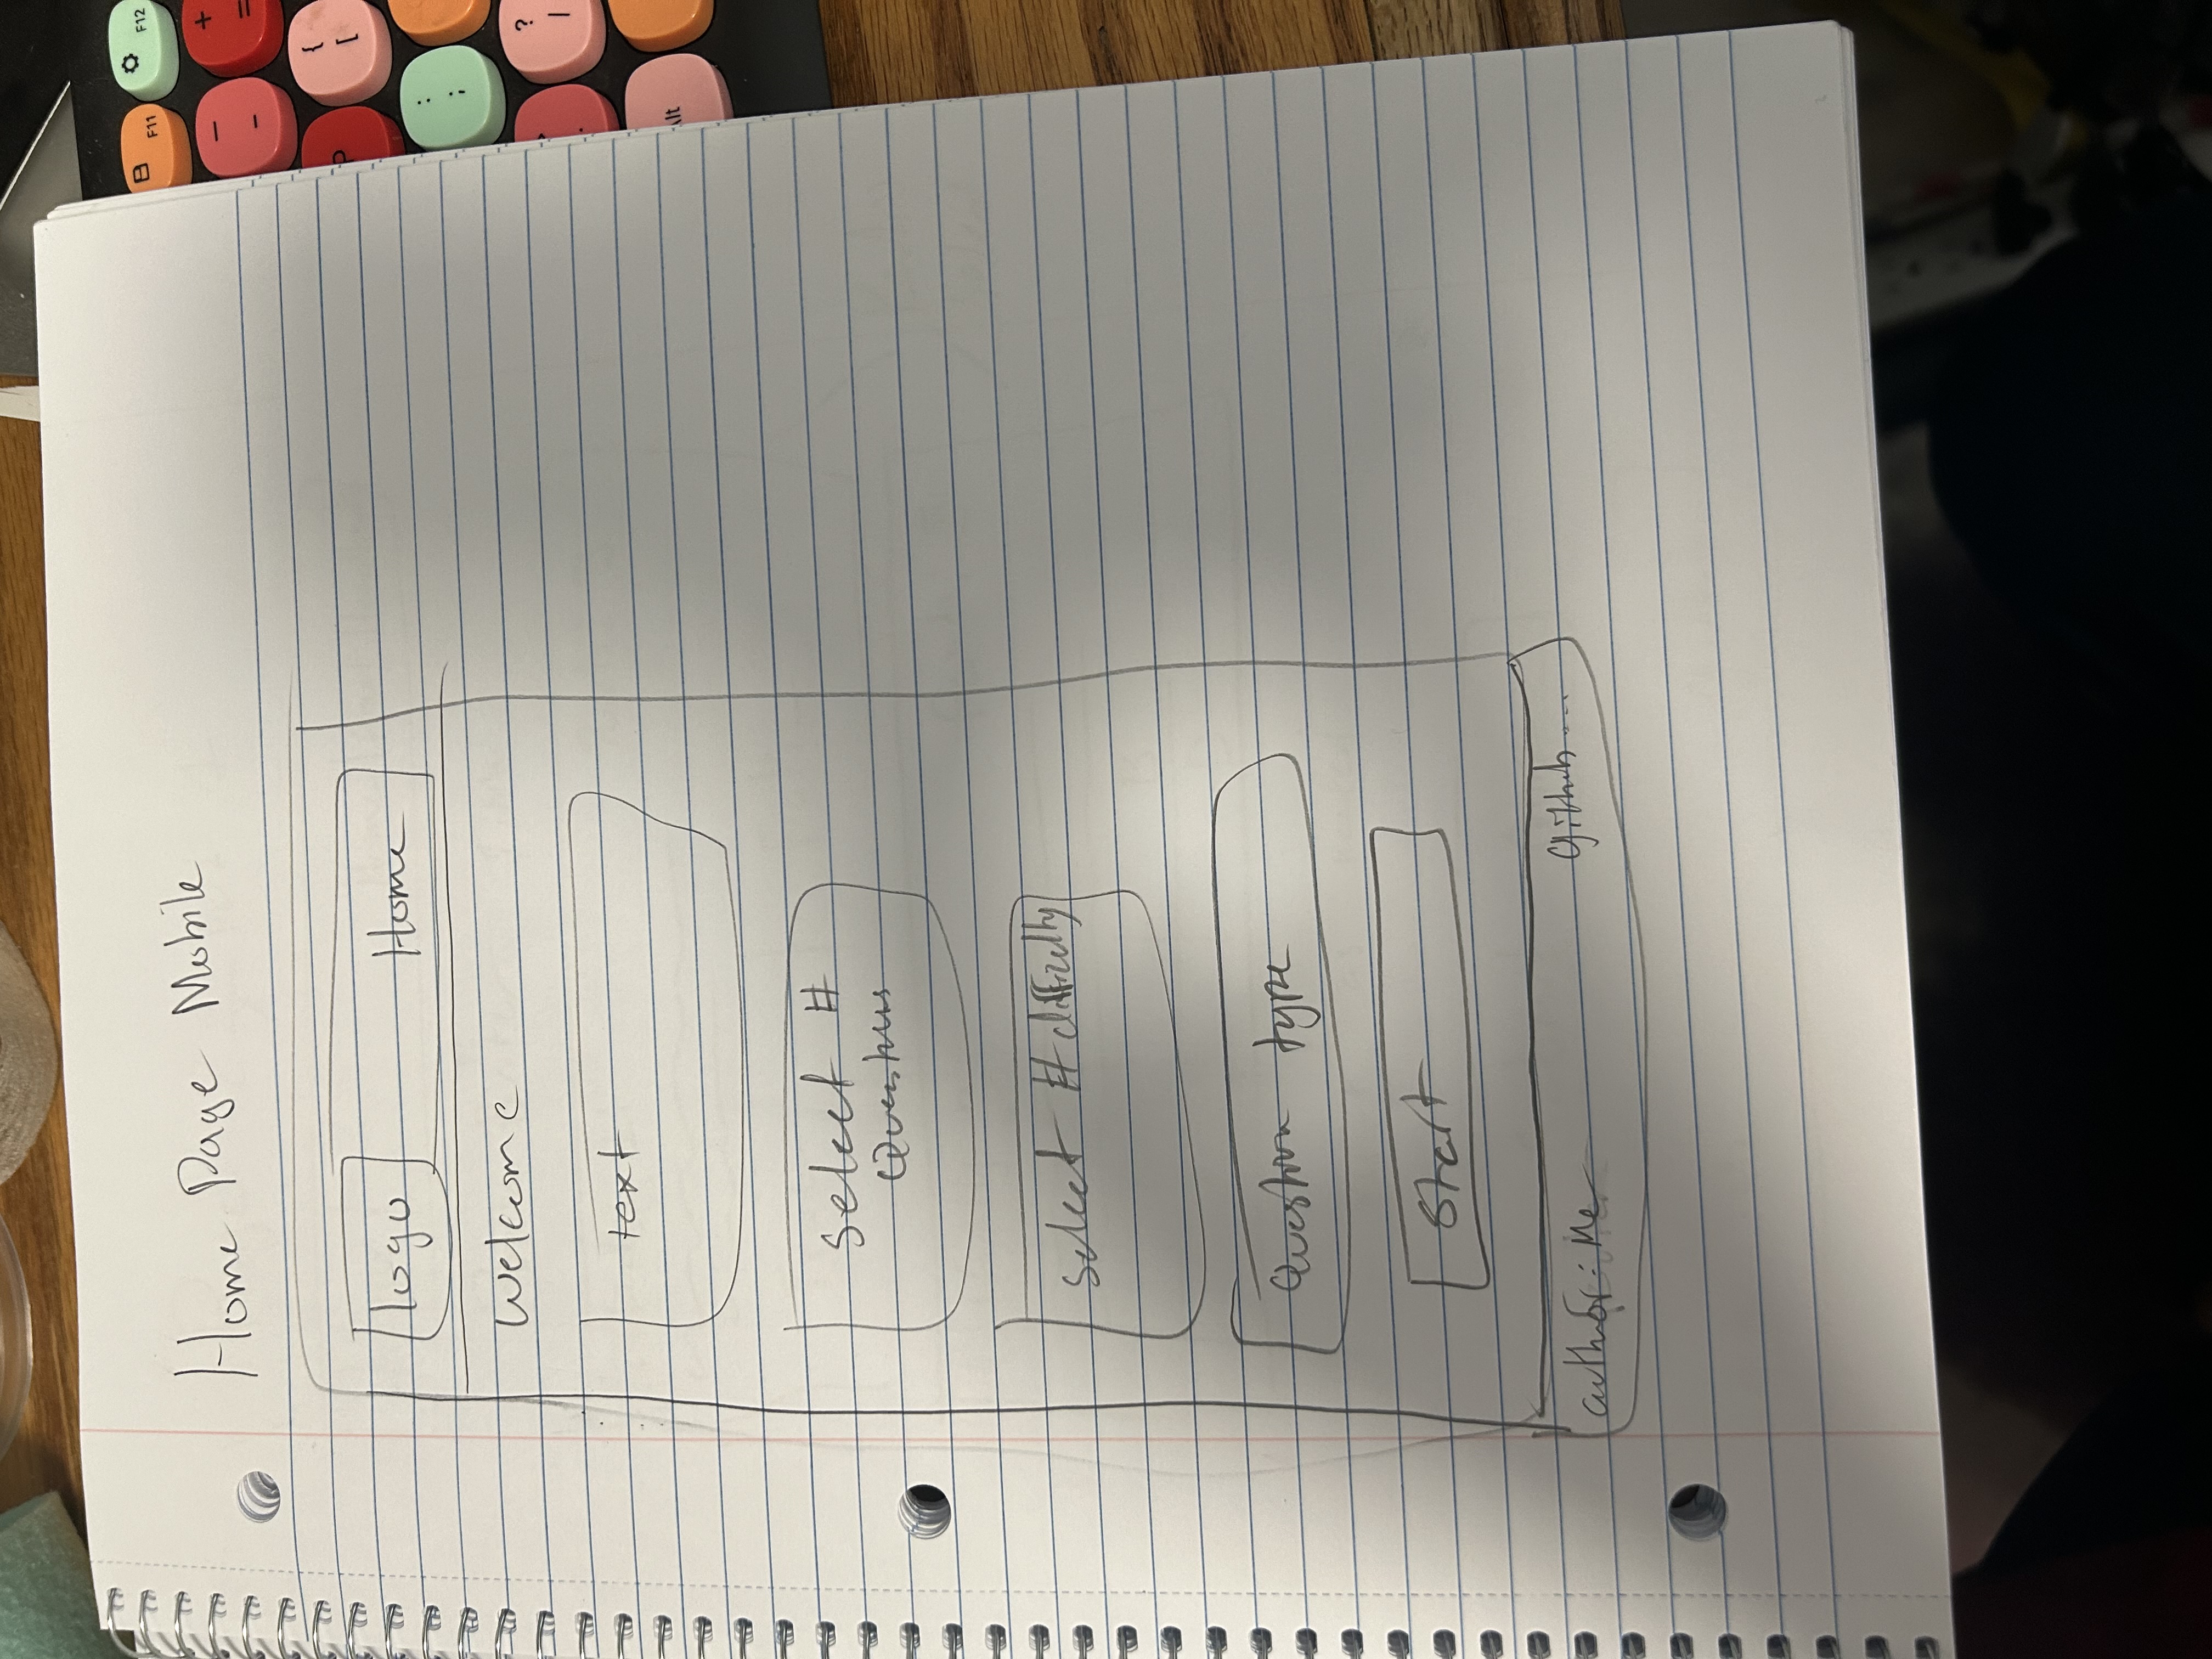 Home Page Mobile
logo Home
Welcome
text
Select #
Questions
Select # difficulty
Question type
Start
author: Me Github....
F11 F12
- +
- =
{
[
:
;
?
/
Alt